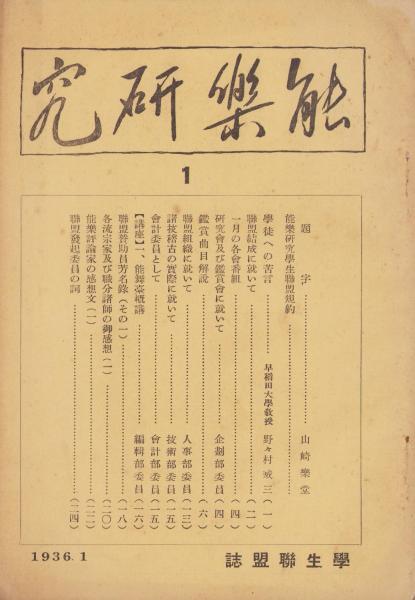 能樂研究
1
題字……山崎樂堂
能樂研究學生聯盟規約
學徒への苦言……早稻田大學敎授 野々村戒三(一)
聯盟結成に就いて……(二)
一月の各會番組……(四)
硏究會及び鑑賞會に就いて……企劃部委員(四)
鑑賞曲目解說……(六)
聯盟組織に就いて……人事部委員(一三)
諸技稽古の實際に就いて……技術部委員(一五)
會計委員として……會計部委員(一五)
【講座】一、能舞臺槪講……編輯部委員(一六)
聯盟贊助員芳名錄(その一)……(一八)
各流宗家及び職分諸師の御感想(一)……(二〇)
能樂評論家の感想文(一)……(二二)
聯盟發起委員の詞……(二四)
1936.1
學生聯盟誌